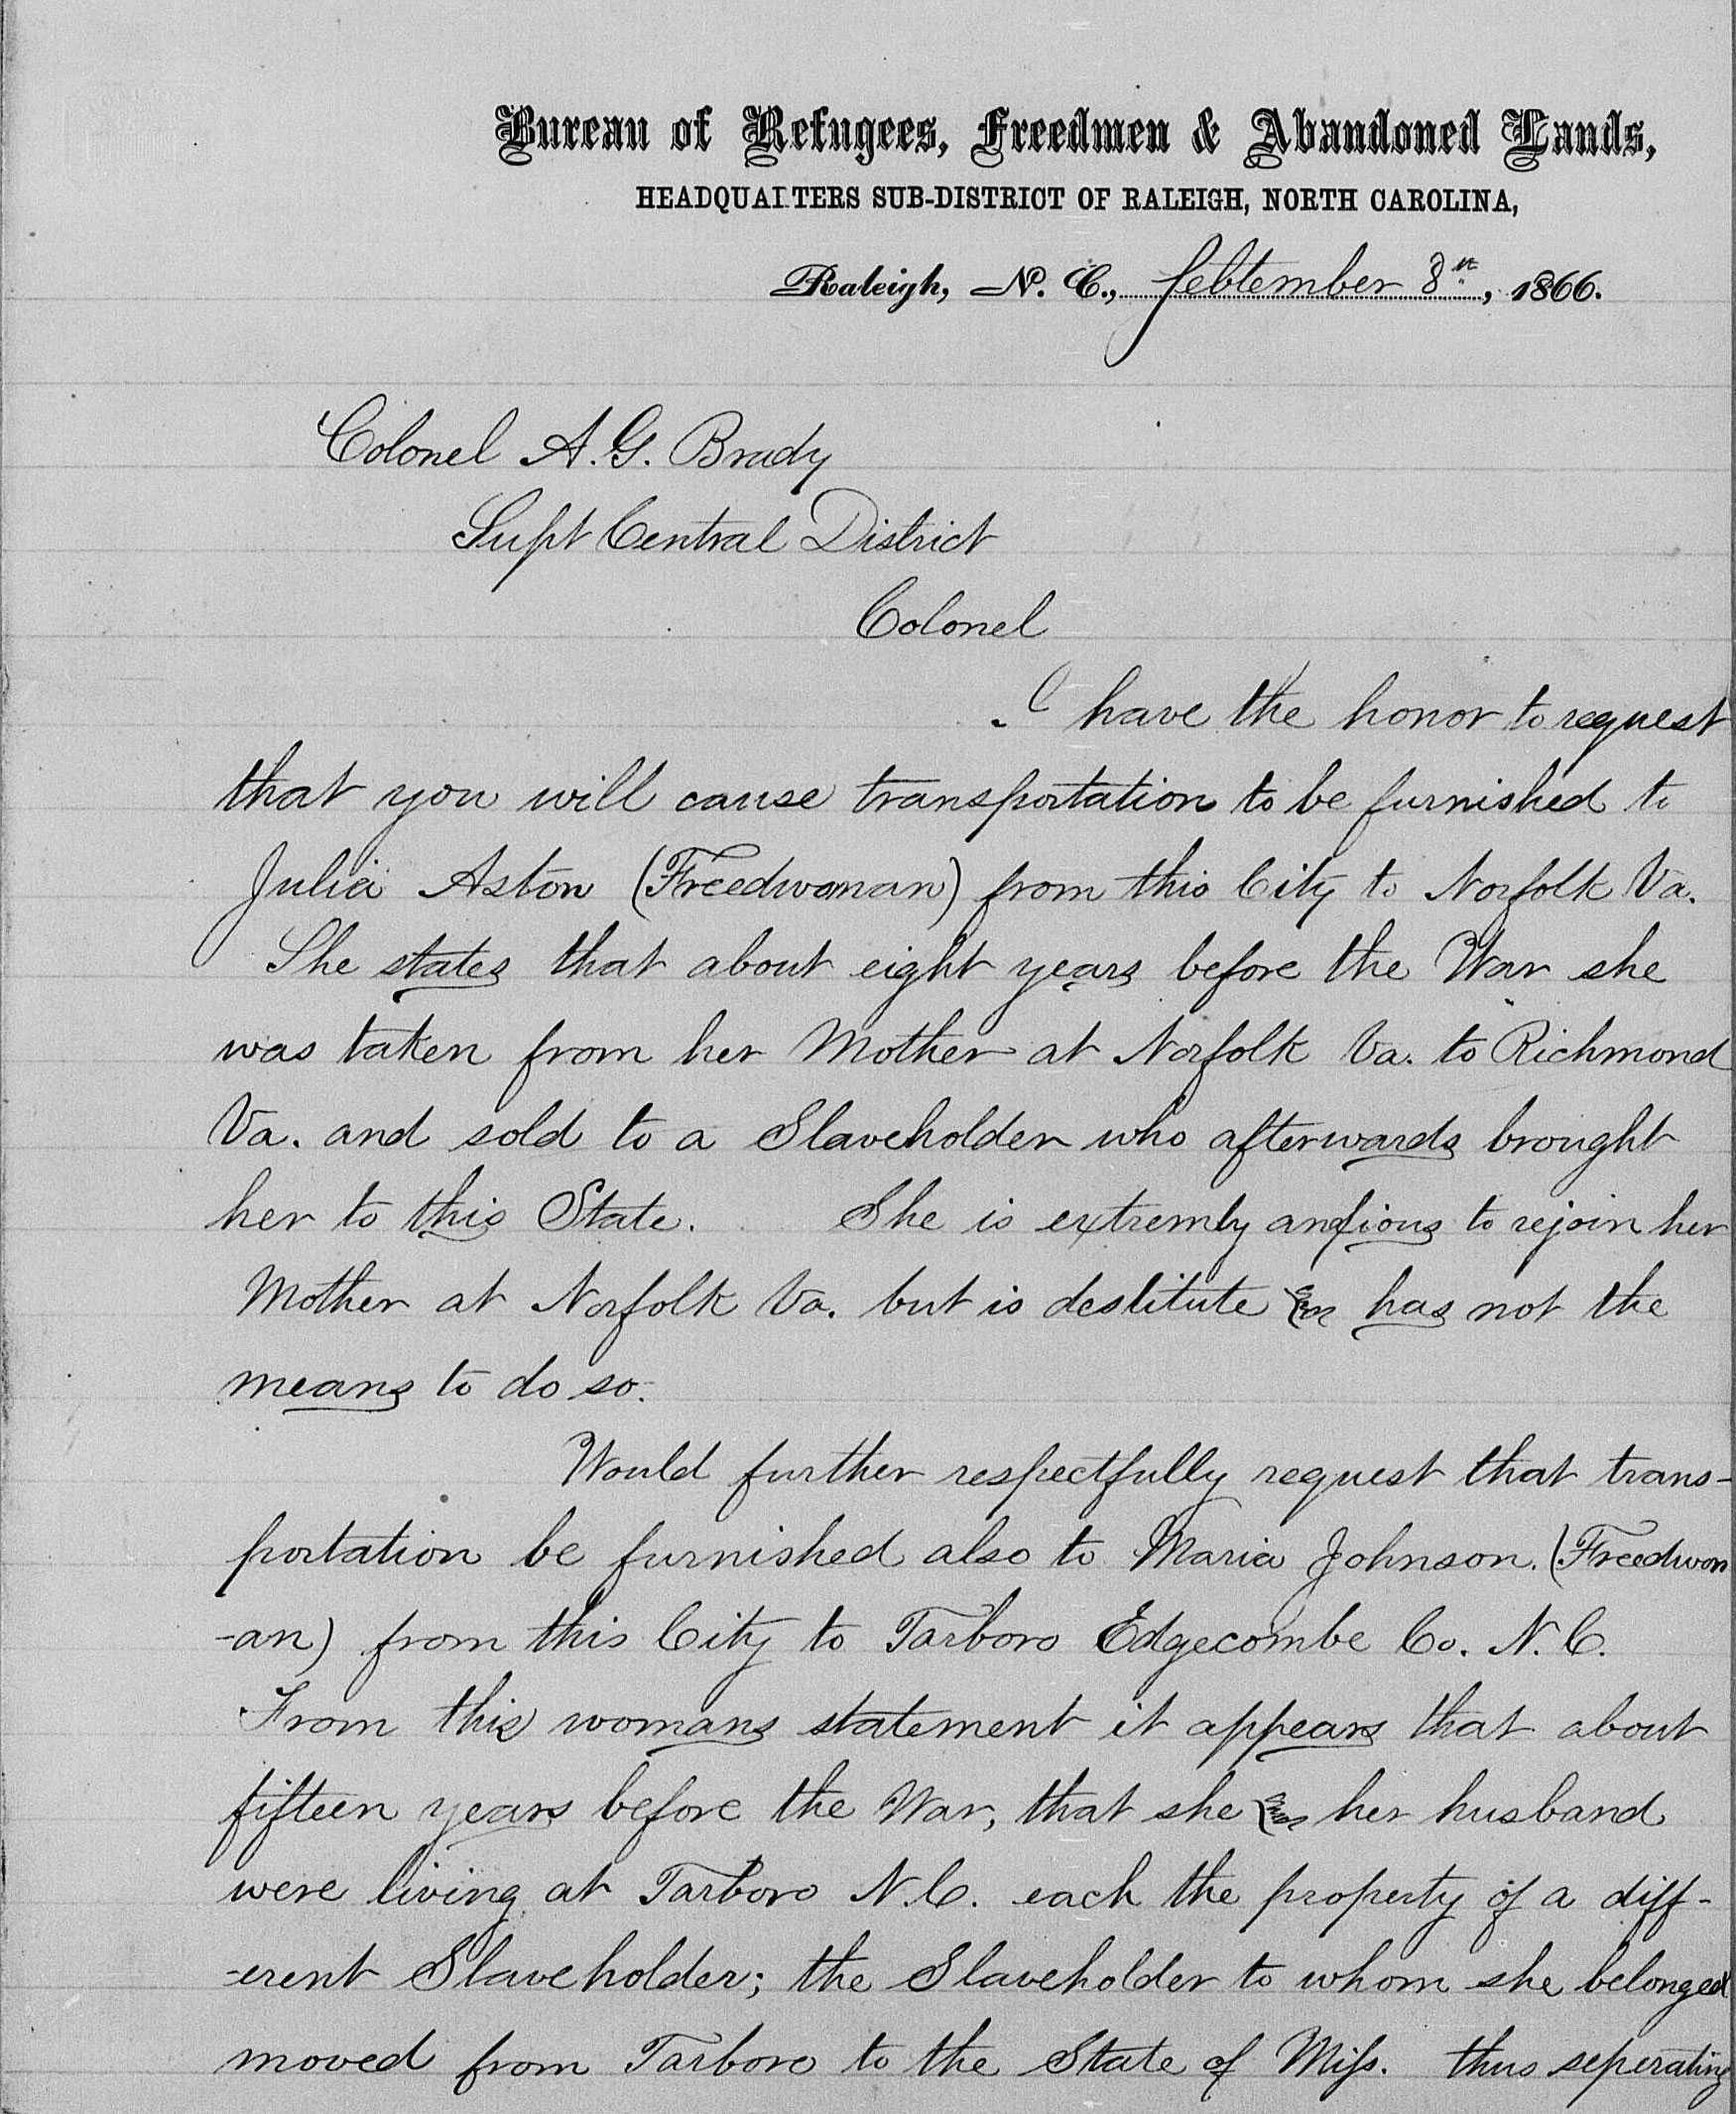 Bureau of Refugees, Freedmen & Abandoned Lands,
HEADQUARTERS SUB-DISTRICT OF RALEIGH, NORTH CAROLINA,
Raleigh, N. C., September 8th, 1866.
Colonel A. G. Brady
Supt Central District
Colonel
I have the honor to request
that you will cause transportation to be furnished to
Julia Aston (Freedwoman) from this City to Norfolk Va.
She states that about eight years before the War she
was taken from her Mother at Norfolk Va. to Richmond
Va. and sold to a Slaveholder who afterwards brought
her to this State. She is extremly anxious to rejoin her
Mother at Norfolk Va. but is destitute & has not the
means to do so.
Would further respectfully request that trans-
portation be furnished also to Maria Johnson. (Freedwom
-an) from this City to Tarboro Edgecombe Co. N. C.
From this womans statement it appears that about
fifteen years before the War, that she & her husband
were living at Tarboro N.C. each the property of a diff-
-erent Slaveholder; the Slaveholder to whom she belonged
moved from Tarboro to the State of Miss. thus seperating